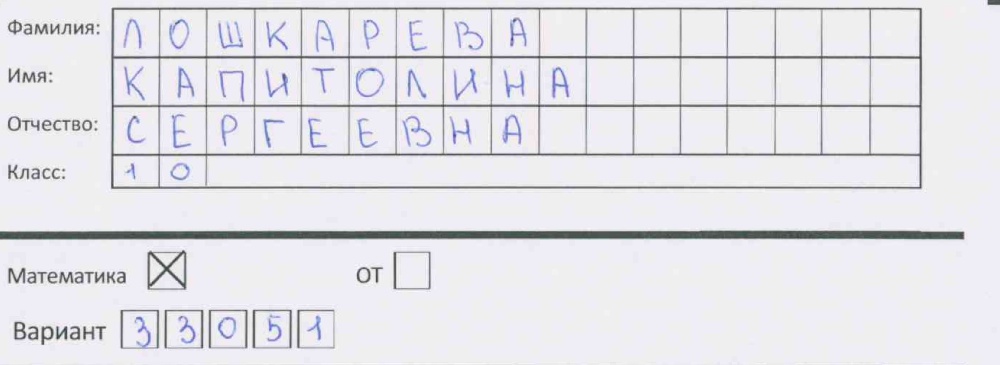 Фамилия: ЛОШКАРЕВА
Имя: КАПИТОЛИНА
Отчество: СЕРГЕЕВНА
Класс: 10
Математика ☒ ОТ ☐
Вариант 33051